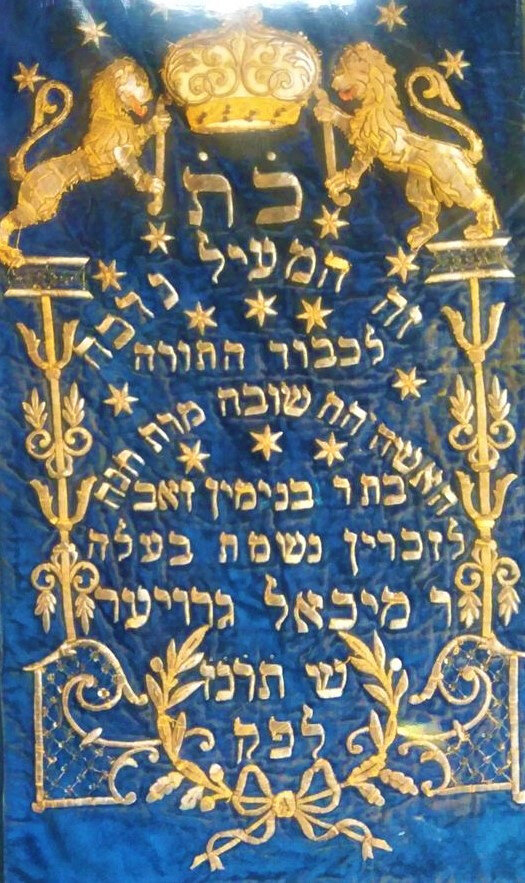 כׄתׄ
זה המעיל נדבה
לכבוד התורה
האשה החשובה מרת חנה
בת ר בנימין זאב
לזכרון נשמת בעלה
ר מיכאל גרויער
ש תרכז
לפק